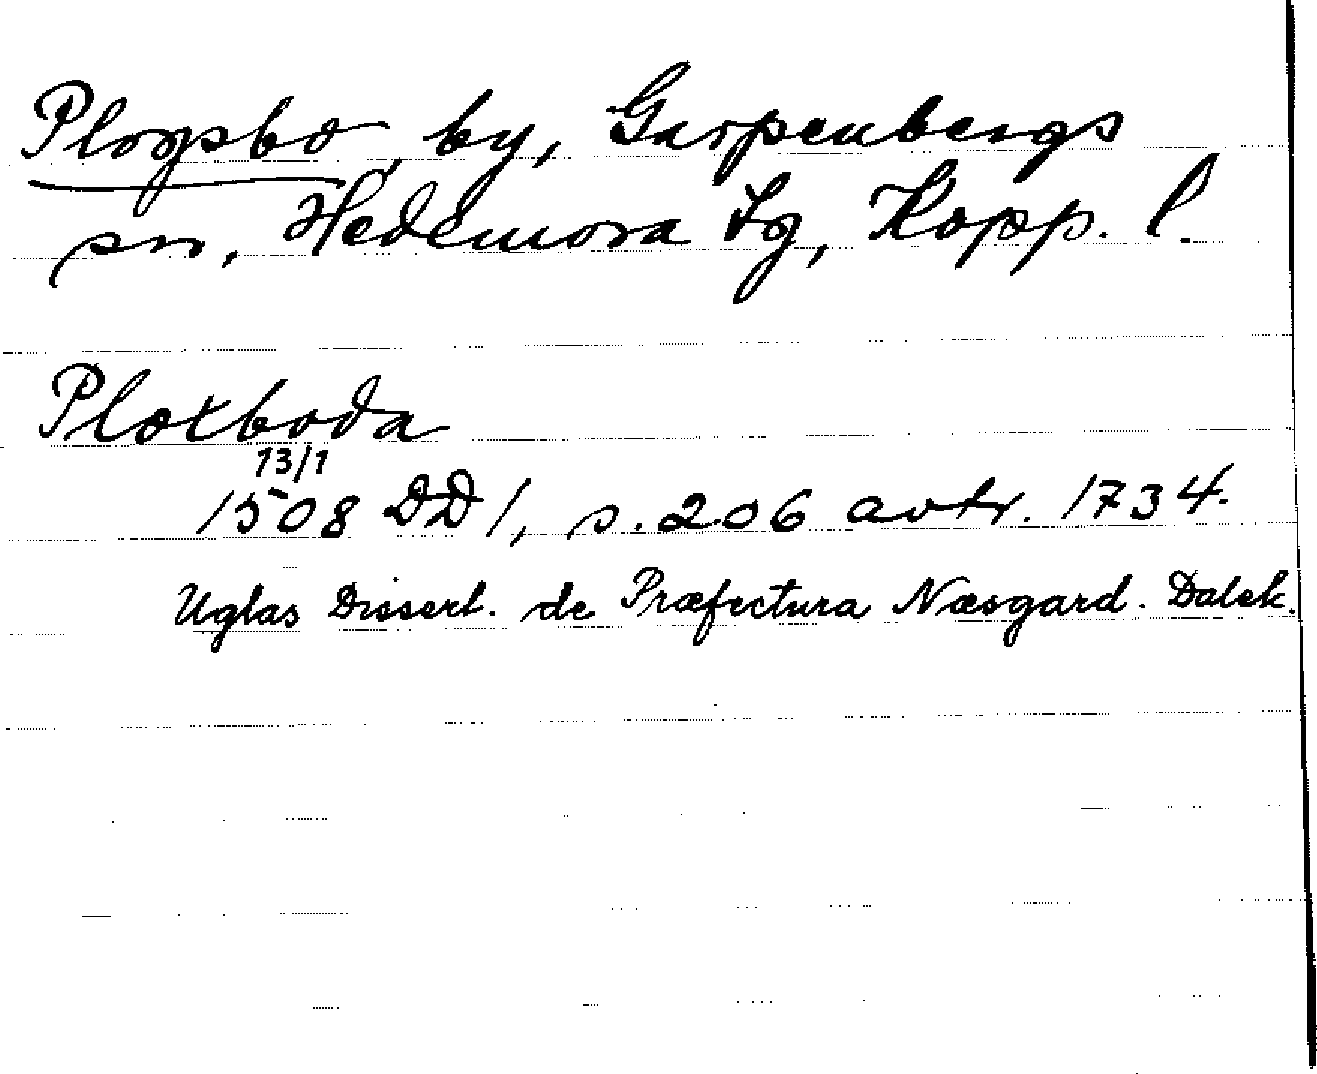 Plogsbo, by, Garpenbergs
sn, Hedemora tg, Kopp. l.
Ploxboda
13/1
1508 DD 1, s. 206 avtr. 1734.
Uglas Dissert. de Præfectura Næsgard. Dalek.